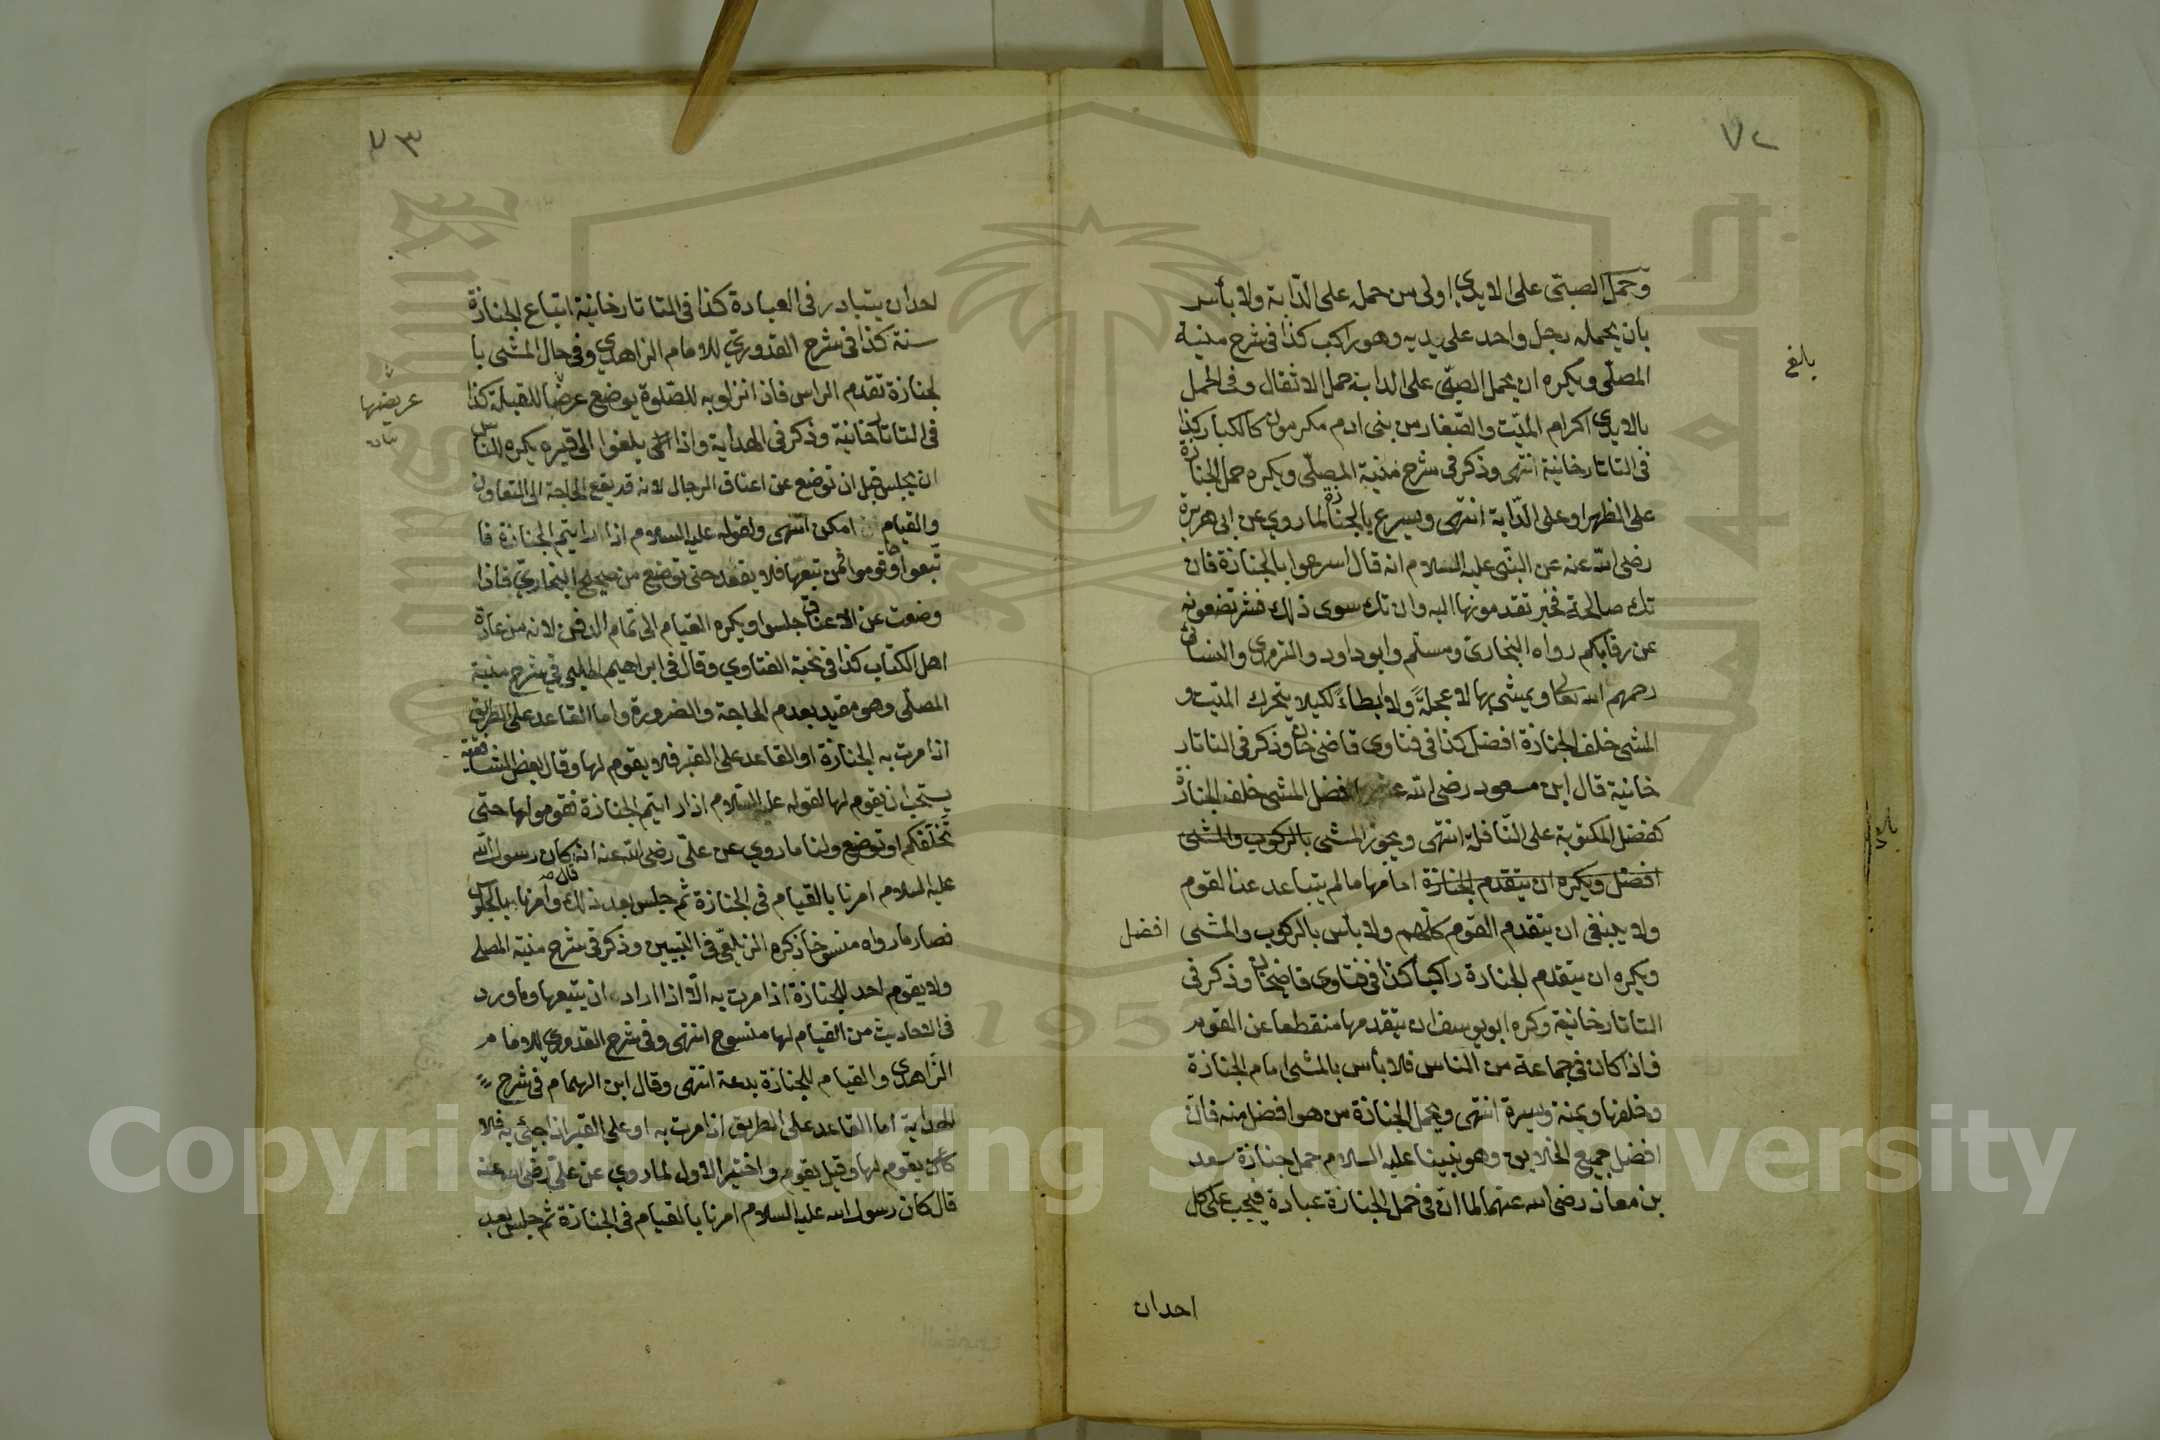 ٧٢
وحمل الصبى على الايدي اولى من حمله على الدابة ولا بأس
بان يحمله رجل واحد على يديه وهو راكب كذا فى شرح منية
المصلّى ويكره ان يحمل الصبّى على الدابة حمل الاثقال وفى الحمل
بالايدي اكرام الميّت والصّغار من بنى ادم مكرمون كالكبار كذا
فى التاتارخانية انتهى وذكر فى شرح منية المصلّى ويكره حمل الجنازة
على الظهر او على الدّابة انتهى ويسرع بالجنازة لما روي عن ابى هريرة
رضى الله عنه عن النبّى عليه السلام انه قال اسرعوا بالجنازة فان
تك صالحة فخير تقدمونها اليه وان تك سوى ذلك فشر تضعونه
عن رقابكم رواه البخارى ومسلم وابو داود والترمزى والنسائى
رحمهم الله تعالى ويمشى بها لا عجلةً ولا ابطاءً لكيلا يتحرك الميّت و
المشى خلف الجنازة افضل كذا فى فتاوى قاضى خان وذكر فى التاتار
خانية قال ابن مسعود رضى الله عنه افضل المشى خلف الجنازة
كفضل المكتوبة على النّافلة انتهى ويجوز المشى بالركوب والمشى
افضل ويكره ان يتقدم الجنازة امامها ما لم يتباعد عن القوم
ولا ينبغى ان يتقدم القوم كلّهم ولا بأس بالركوب والمشى افضل
ويكره ان يتقدم الجنازة راكبًا كذا فى فتاوى قاضيخان وذكر فى
التاتارخانية وكره ابو يوسف ان يتقدمها منقطعا عن القوم
فاذا كان فى جماعة من الناس فلا بأس بالمشى امام الجنازة
وخلفها ويمنة ويسرة انتهى ويحمل الجنازة من هو افضل منه فان
افضل جميع الخلايق وهو نبينا عليه السلام حمل جنازة سعد
بن معاذ رضى الله عنهما لما انّ فى حمل الجنازة عبادة فيجب على كل
احدان
بلغ
٧٣
احدان يتبادر فى العبادة كذا فى التاتارخانية اتباع الجنازة
سنة كذا فى شرح القدوري للامام الزاهدي وفى حال المشى با
لجنازة تقدم الراس فاذا نزلوا به للصّلوة يوضع عرضًا للقبلة كذا
فى التاتارخانية وذكر فى الهداية واذا بلغوا الى قبره يكره للناس
ان يجلس قبل ان توضع عن اعناق الرجال لانه قد يقع الحاجة الى التعاون
والقيام امكن انتهى ولقوله عليه السلام اذا رايتم الجنازة فا
تّبعوا وقوموا فمن تبعها فلا يقعد حتى توضع من صحيح البخارىّ فاذا
وضعت عن الاعناق جلسوا ويكره القيام الى تمام الدفن لانه من عادة
اهل الكتاب كذا فى نخبة الفتاوي وقال فى ابراهيم الحلبى فى شرح منية
المصلّى وهو مقيد بعدم الحاجة والضرورة واما القاعد على الطريق
اذا مرت به الجنازة او القاعد على القبر فلا يقوم لها وقال بعض الشافعية
يستحب ان يقوم لها لقوله عليه السّلام اذا رايتم الجنازة فقوموا لها حتى
تخلّفكم او توضع ولنا ما روي عن علىّ رضى الله عنه انه قال كان رسول الله
عليه السلام امرنا بالقيام فى الجنازة ثم جلس بعد ذلك وامرنا بالجلوس
فصار ما رواه منسوخا ذكره الزيلعىّ فى التبيين وذكر فى شرح منية المصلى
ولا يقوم احد للجنازة اذا مرت به الّا اذا اراد ان يتبعها وما ورد
فى الاحاديث من القيام لها منسوخ انتهى وفى شرح القدوري للامام
الزّاهدي والقيام للجنازة بدعة انتهى وقال ابن الهمام فى شرح
الهداية اما القاعد على الطريق اذا مرت به او على القبر اذا جيئ به فلا
يقوم لها وقيل يقوم واختير الاول لما روي عن علىّ رضى الله عنه
قال كان رسول الله عليه السلام امرنا بالقيام فى الجنازة ثم جلس بعد
عريضها
Copyright © King Saud University
1957